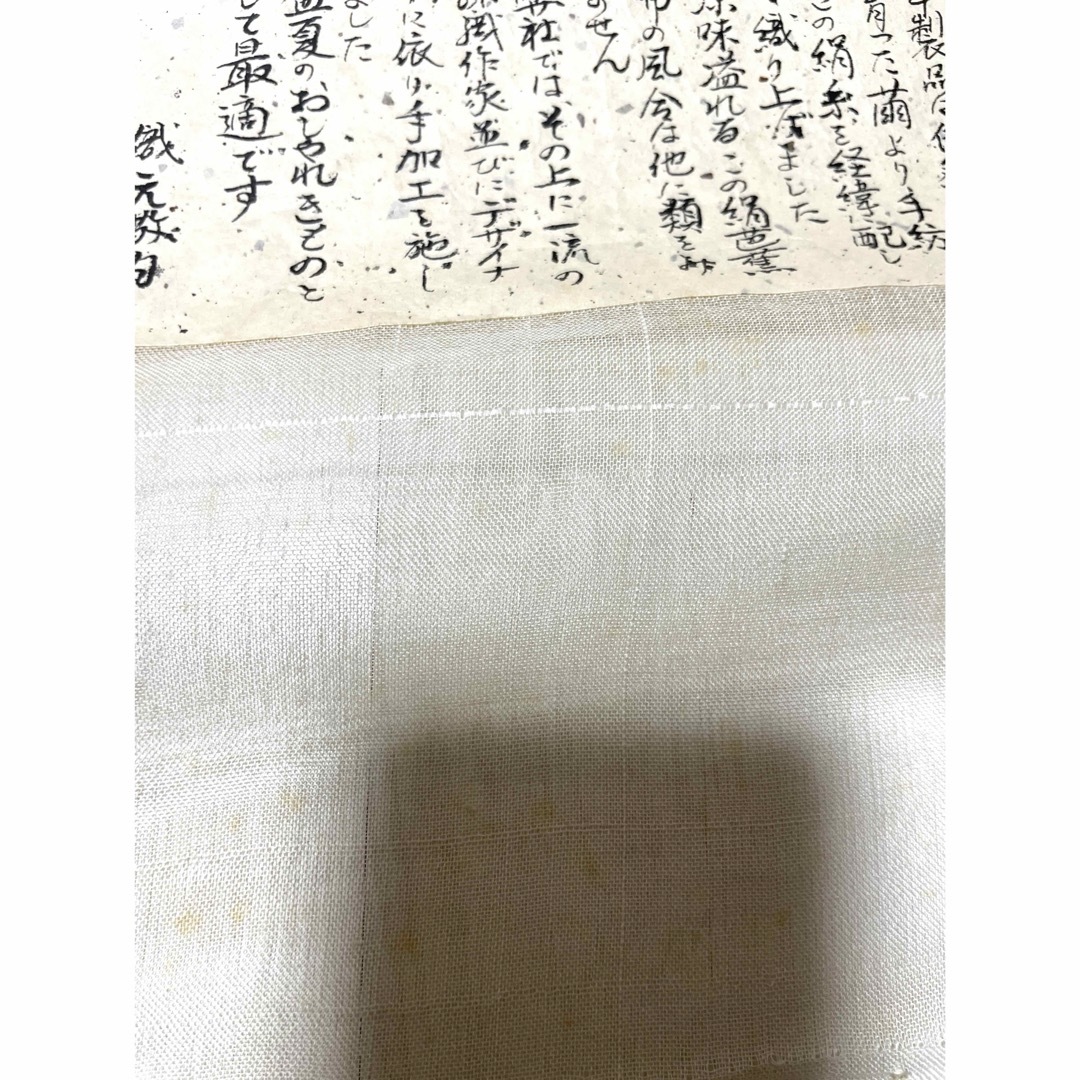 製品は
月った繭より手紡
この絹糸を経緯に配し
織り上げました
味溢れるこの絹芭蕉
布の風合は他に類をみ
ません
弊社ではその上に一流の
染織作家並びにデザイナ
に依り手加工を施し
ました
盛夏のおしゃれきものと
して最適です
織元敬白